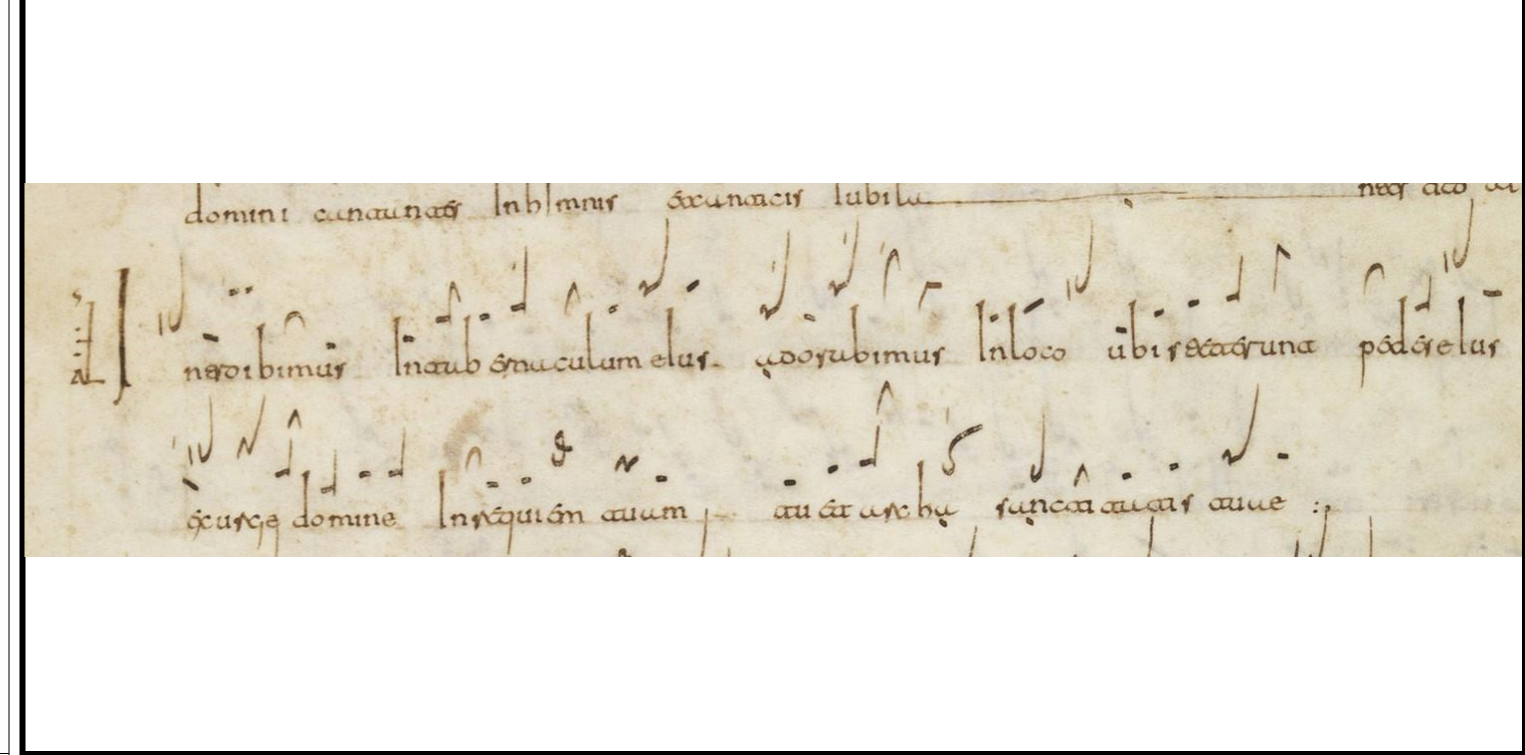 domini cantantes In hImnis et cantacis Iubila
Introibimus In tabernaculum eIus adorabimus In loco ubi steterunt pedes eIus
exurge domine In requiem tuam tu et archa sanctitatis tuae